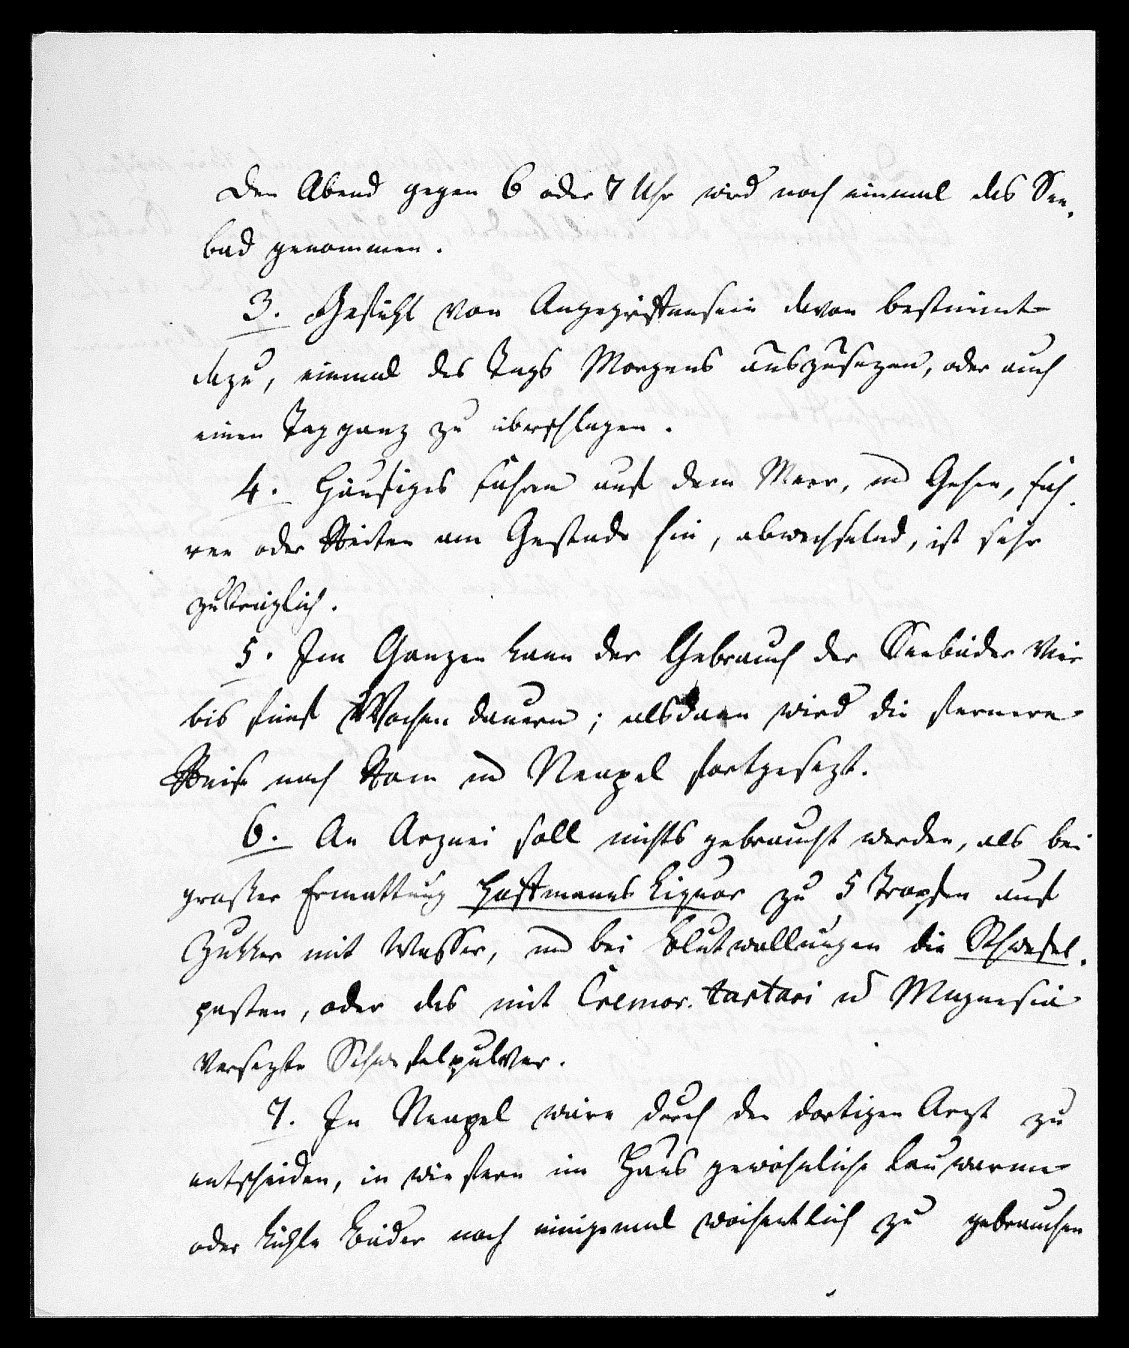 Den Abend gegen 6 oder 7 Uhr wird noch einmal das See-
bad genommen.
3. Gefühl von Angegriffensein davon bestimmt
dazu, einmal des Tags Morgens auszusezen, oder auch
einen Tag ganz zu überschlagen.
4. Häufiges Fahren auf dem Meer, und Gehen, Fah-
ren oder Reiten am Gestade hin, abwechselnd, ist sehr
zuträglich.
5. Im Ganzen kann der Gebrauch der Seebäder vier
bis fünf Wochen dauern; alsdann wird die fernere
Reise nach Rom und Neapel fortgesezt.
6. An Arznei soll nichts gebraucht werden, als bei
großer Ermattung Hoffmanns Liquor zu 5 Tropfen auf
Zukker mit Wasser, und bei Blutwallungen die Schwefel-
pasten, oder das mit Cremor. tartari und Magnesia
versezte Schwefelpulver.
7. In Neapel wäre durch den dortigen Arzt zu
entscheiden, in wie fern im Haus gewöhnliche lauwarme
oder kühle Bäder noch einigemal wöchentlich zu gebrauchen